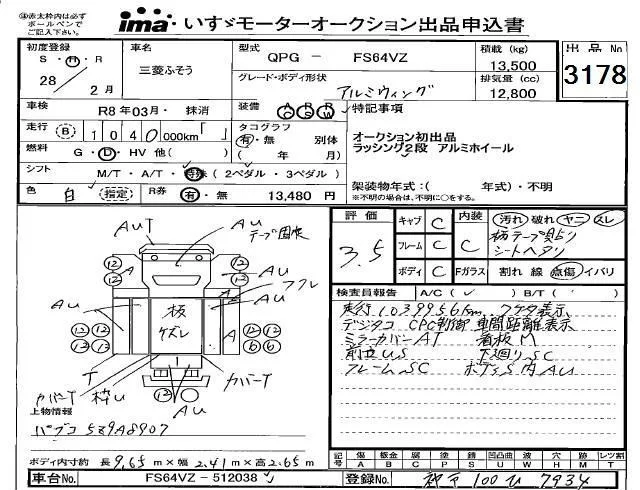 ④赤太枠内は必ず
ボールペンで
ご記入下さい。
ima いすゞモーターオークション出品申込書
初度登録 S・H・R 28/2月
車名 三菱ふそう
型式 QPG - FS64VZ
グレード・ボディ形状 アルミウィング
積載 (kg) 13,500
排気量 (cc) 12,800
出品No 3178
車検 R8年03月・ 抹消
装備 A C P S P W
特記事項
走行 (B) 1 0 4 0 000km「 」
タコグラフ 有・無 別体 ( 年 月)
オークション初出品
ラッシング2段 アルミホイール
燃料 G・D・HV 他( )
シフト M/T・A/T・特殊(2ペダル・3ペダル)
架装物年式:( 年式)・不明
※不明の場合は、不明に○をする。
色 白 (指定)
R券 有・無 13,480 円
評価 3.5
キャブ C
フレーム C
ボディ C
内装 C
Fガラス
汚れ 破れ ヤニ スレ
柄テープ貼り
シートヘタリ
割れ 線 点傷 イバリ
検査員報告 A/C( ✓ ) B/T( )
走行1039956km ワケタ表示
デジタコ CPC制御 車間距離表示
ミラーカバーAT 看板M
前立US 下廻りSC
フレームSC ボディS内AU
AUT
AU
テープ固痕
AU
AU
フクレ
AU
板
ケズレ
A
A
A
A
⑫ ⑫
⑫ ⑫
⑫ ⑫ ⑫ ⑫
⑫ ⑫ ⑥ ⑥
⑫
T
カバーT 枠U
カバーT
AU
上物情報
パブコ 539A8907
ボディ内寸約 長9.65m×幅2.41m×高2.65m
記号 傷 A 板金 B 腐 C 塗 P 錆 S 凹凸曲 U 波 W 穴 H 跡 M 落 T レツ割
車台No. FS64VZ-512038
登録No. 100 ひ 7934